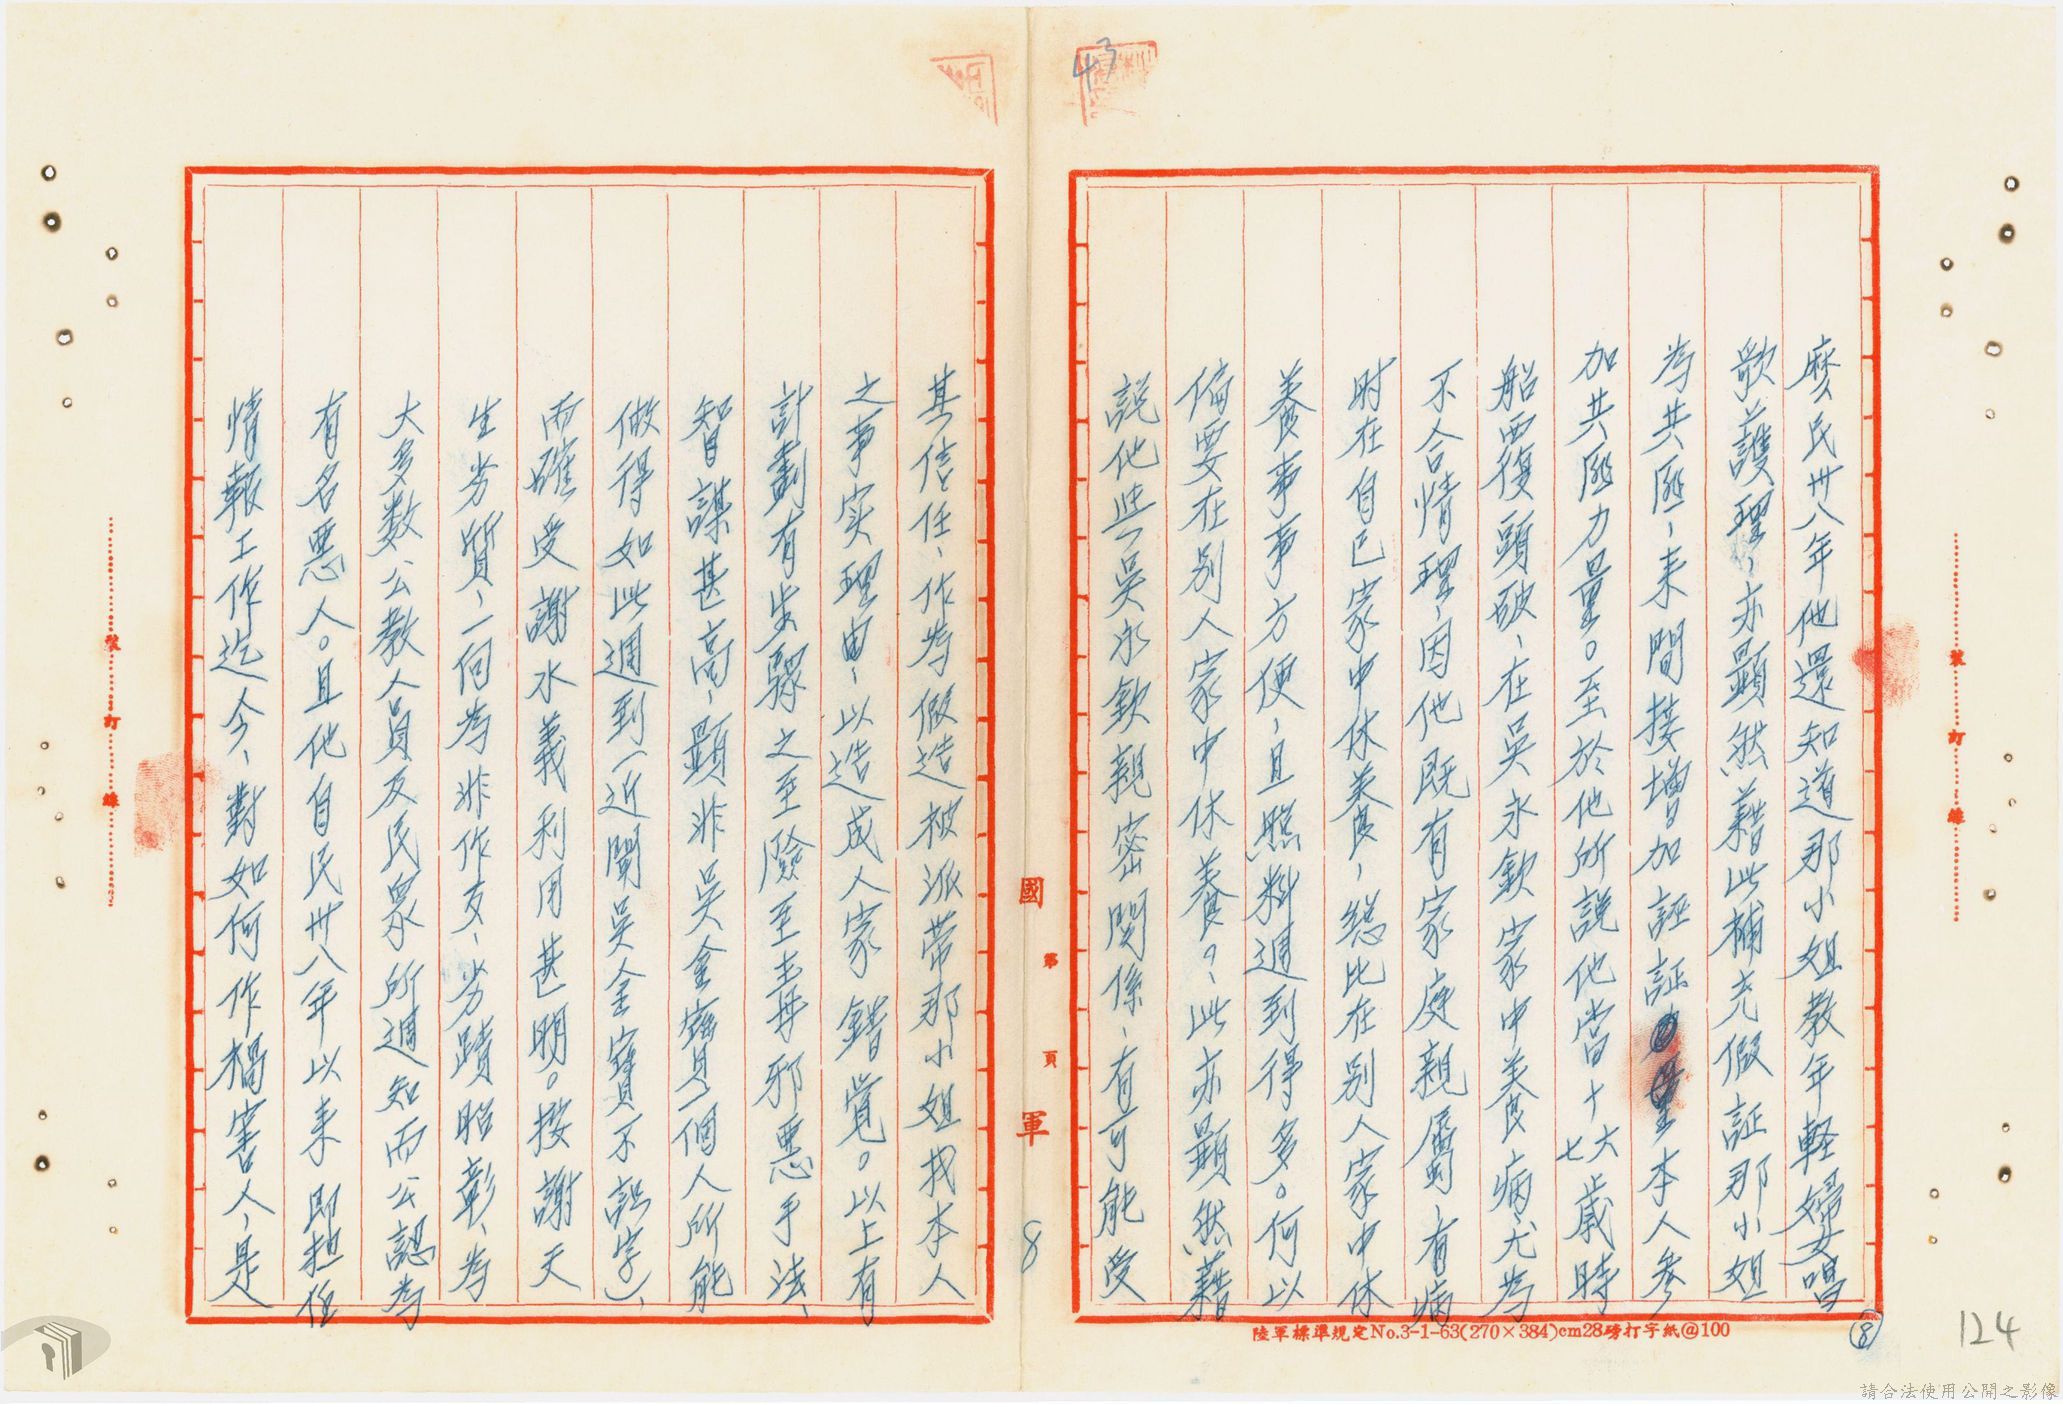 43
麼民卅八年他還知道那小姐教年軽婦女唱
歌護理、亦顯然藉此補充假証那小姐
為共匪、来間接增加誣証本人參
加共匪力量。至於他所說他當十六七歲時
船西復頭破、在吳永欽家中养病、尤為
不合情理、因他既有家庭親屬、有病
时在自己家中休养、総比在别人家中休
养食事事方便、且照料週到得多。何以
偏要在别人家中休养？、此亦顯然藉
說他與吳永欽親密関係、有可能受
國
第
頁
軍
8
其信任、作為假造被派带那小姐找本人
之事实理由、以造成人家錯覚。以上有
計劃有步驟之至險至毒邪惡手法、
智謀甚高、顯非吳金寶一個人所能
做得如此週到(近聞吳金寶不認字)、
而確受謝水義利用甚明。按謝天
生劣質、一向為非作歹、劣蹟昭彰、為
大多数公教人員及民眾所週知而公認為
有名惡人。且他自民卅八年以来即担任
情報工作迄今、對如何作禍害人、是
裝
訂
線
裝
訂
線
陸軍標準規定No.3-1-63(270×384)cm28磅打字紙@100
⑧
124
請合法使用公開之影像